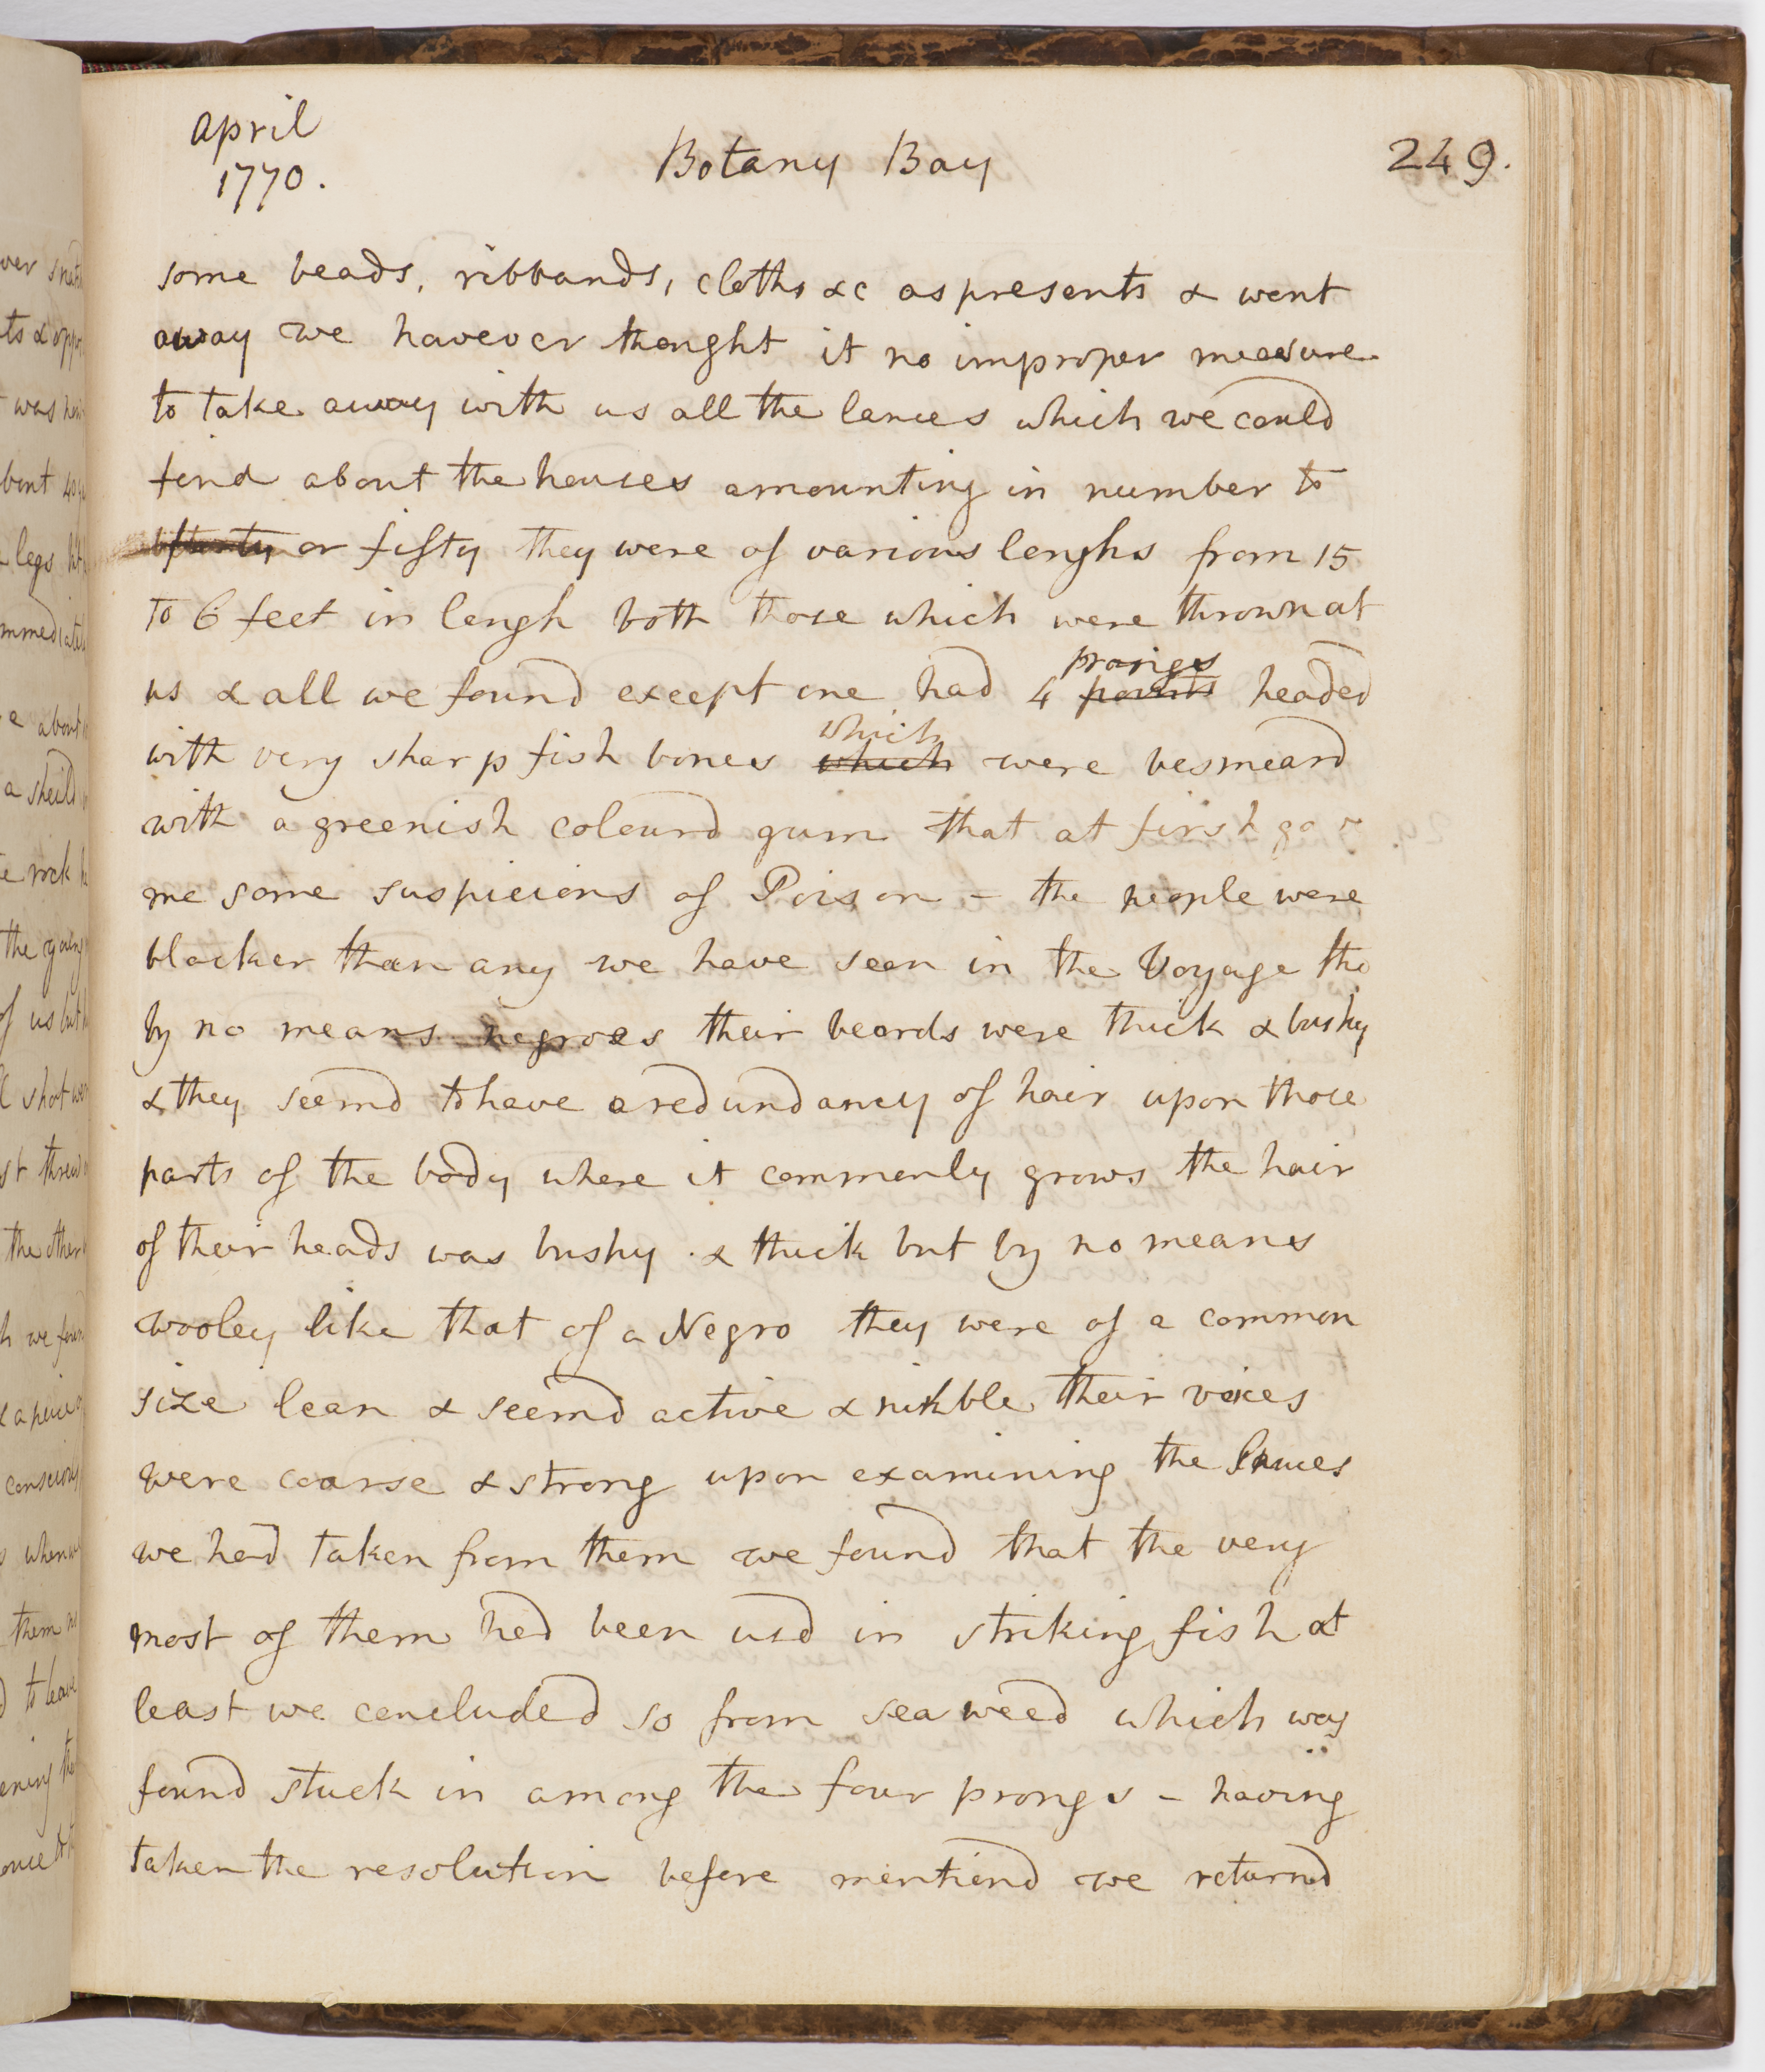 April
1770.
Botany Bay
249.
some beads, ribbands, cloths &c as presents & went
away we however thought it no improper measure
to take away with us all the lances which we could
find about the houses amounting in number to
or fifty they were of various lenghs from 15
to 6 feet in lengh both those which were thrown at
us & all we found except one had 4 prongs headed
with very sharp fish bones which which were besmeard
with a greenish colourd gum that at first gave
me some suspicions of Poison - the people were
blacker than any we have seen in the Voyage tho
by no means negroes their beards were thick & bushy
& they seemd to have a redundancy of hair upon those
parts of the body where it commonly grows the hair
of their heads was bushy & thick but by no means
wooley like that of a Negro they were of a common
size lean & seemd active & nimble their voices
were coarse & strong upon examining the lances
we had taken from them we found that the very
most of them had been usd in striking fish at
least we concluded so from sea weed which was
found stuck in among the four prongs - having
taken the resolution before mentiond we returnd